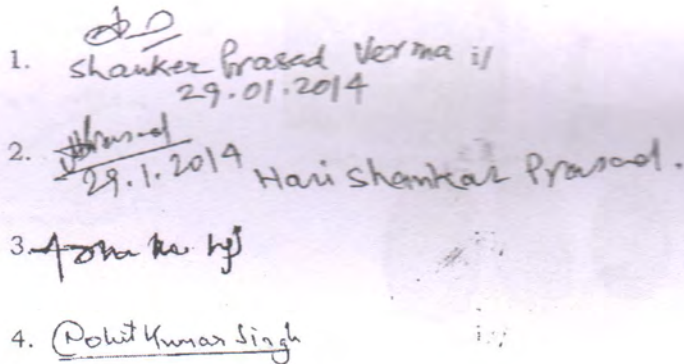 1. Shanker Prasad Verma i/
29.01.2014
2. Prasad
29.1.2014 Hari Shankar Prasad.
3.
4. Rohit Kumar Singh